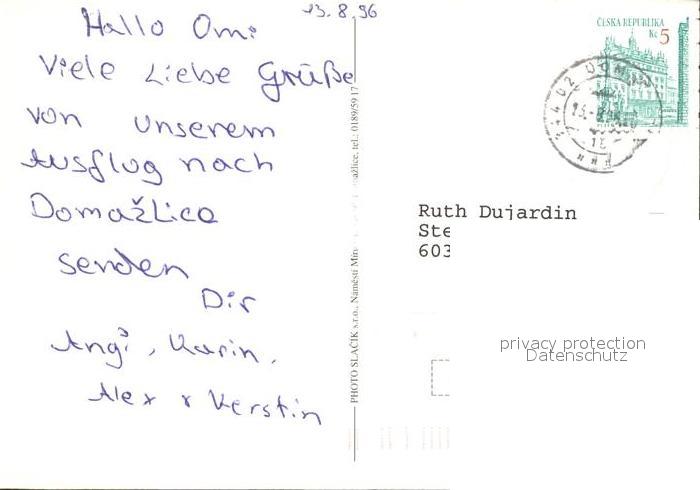 13.8.96
Hallo Omi
Viele Liebe Grüße
von unserem
Ausflug nach
Domažlice
senden
Dir
Angi, Karin,
Alex + Kerstin
PHOTO SLAČÍK s.r.o., Náměstí Míru
ažlice, tel.: 0189/59 17
ČESKÁ REPUBLIKA
Kč 5
Ruth Dujardin
Ste
603
privacy protection
Datenschutz